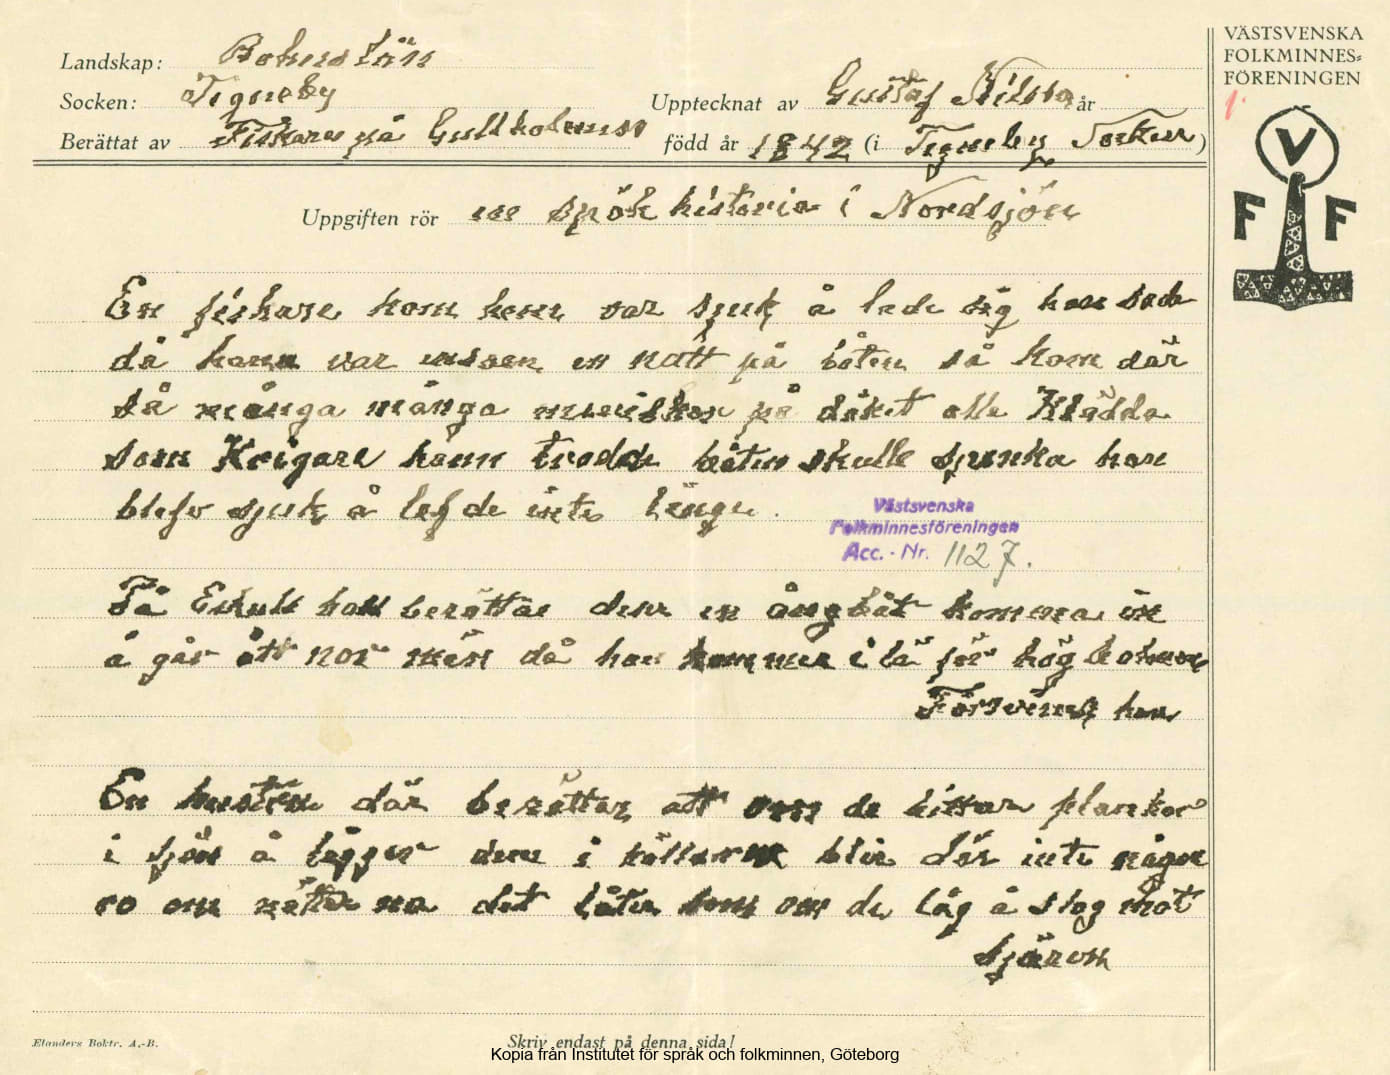 VÄSTSVENSKA
FOLKMINNES=
FÖRENINGEN
1.
V
F F
Landskap: Bohuslän
Socken: Tegneby
Upptecknat av Gustaf Nilsson år
Berättat av Fiskare på Gullholmen
född år 1842 (i Tegneby Socken)
Uppgiften rör en spök historia i Nordsjön
En fiskare kom hem var sjuk å lade sig han sade
då hann var ensam en natt på båten så kom där
så många många meniskor på däket alla Klädda
som Krigare hann trodde båten skulle sjunka han
blefv sjuk å lefde inte länge.
Västsvenska
Folkminnesföreningen
Acc. - Nr. 1127.
På han berättas den en ångbåt komma in
å går ått nor men då han kommer i lä för hög
Försviner han
En där berättar att om de hittar plankor
i sjön å lägger dem i källaren blir där inte någon
ro om nätterna det låter som om de låg å slog mot
sjären
Elanders Boktr. A.-B.
Skriv endast på denna sida!
Kopia från Institutet för språk och folkminnen, Göteborg